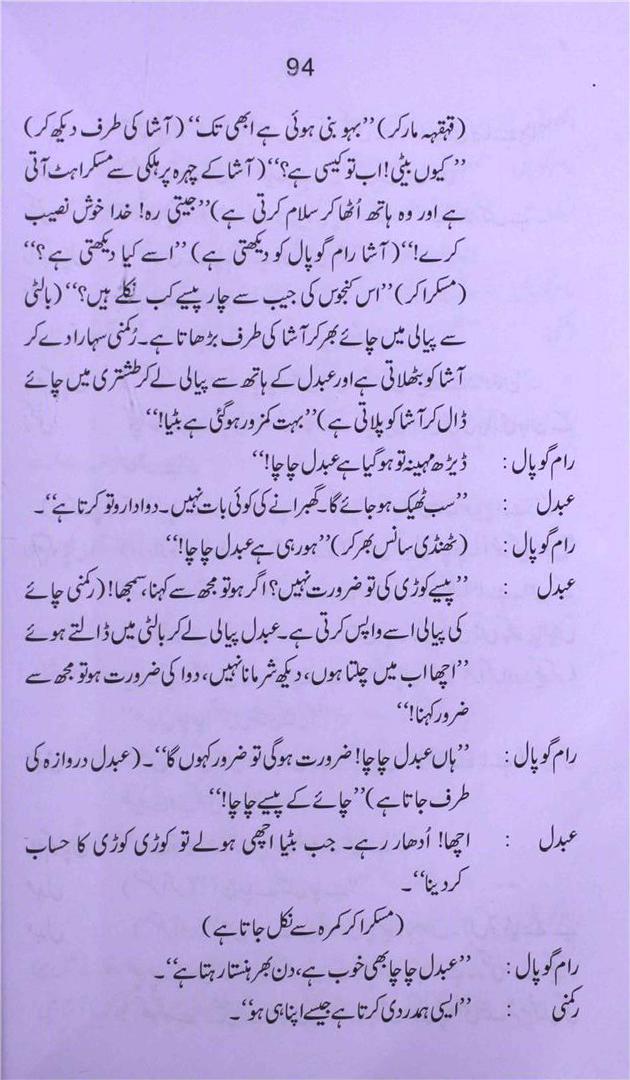 94
(قہقہہ مار کر) ’’بہو بنی ہوئی ہے ابھی تک‘‘ (آشا کی طرف دیکھ کر)
’’کیوں بیٹی! اب تو کیسی ہے؟‘‘ (آشا کے چہرہ پر ہلکی سے مسکراہٹ آتی
ہے اور وہ ہاتھ اُٹھا کر سلام کرتی ہے) ’’جیتی رہ! خدا خوش نصیب
کرے!‘‘ (آشا رام گوپال کو دیکھتی ہے) ’’اسے کیا دیکھتی ہے؟‘‘
(مسکرا کر) ’’اس کنجوس کی جیب سے چار پیسے کب نکلے ہیں؟‘‘ (بالٹی
سے پیالی میں چائے بھر کر آشا کی طرف بڑھاتا ہے۔ رُکمنی سہارا دے کر
آشا کو بٹھلاتی ہے اور عبدل کے ہاتھ سے پیالی لے کر طشتری میں چائے
ڈال کر آشا کو پلاتی ہے) ’’بہت کمزور ہو گئی ہے بٹیا!‘‘
رام گوپال : ڈیڑھ مہینہ تو ہو گیا ہے عبدل چاچا!‘‘
عبدل : ’’سب ٹھیک ہو جائے گا۔ گھبرانے کی کوئی بات نہیں۔ دوا دارو تو کرتا ہے‘‘۔
رام گوپال : (ٹھنڈی سانس بھر کر) ’’ہو رہی ہے عبدل چاچا!‘‘
عبدل : ’’پیسے کوڑی کی تو ضرورت نہیں؟ اگر ہو تو مجھ سے کہنا، سمجھا! (رکمنی چائے
کی پیالی اسے واپس کرتی ہے۔ عبدل پیالی لے کر بالٹی میں ڈالتے ہوئے
’’اچھا اب میں چلتا ہوں، دیکھ شرمانا نہیں، دوا کی ضرورت ہو تو مجھ سے
ضرور کہنا!‘‘
رام گوپال : ’’ہاں عبدل چاچا! ضرورت ہوگی تو ضرور کہوں گا‘‘۔ (عبدل دروازہ کی
طرف جاتا ہے) ’’چائے کے پیسے چاچا!‘‘
عبدل : اچھا! اُدھار رہے۔ جب بٹیا اچھی ہولے تو کوڑی کوڑی کا حساب
کر دینا‘‘۔
(مسکرا کر کمرہ سے نکل جاتا ہے)
رام گوپال : ’’عبدل چاچا بھی خوب ہے، دن بھر ہنستا رہتا ہے‘‘۔
رکمنی : ’’ایسی ہمدردی کرتا ہے جیسے اپنا ہی ہو‘‘۔